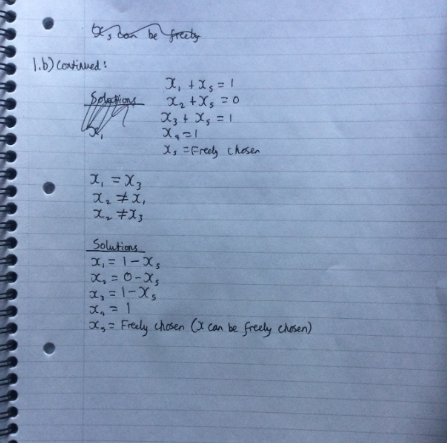 x₅ can be freely
1.b) continued:
x₁ + x₅ = 1
Solutions x₂ + x₅ = 0
x₃ + x₅ = 1
x₁ x₄ = 1
x₅ = Freely chosen
x₁ = x₃
x₂ ≠ x₁
x₂ ≠ x₃
Solutions
x₁ = 1 - x₅
x₂ = 0 - x₅
x₃ = 1 - x₅
x₄ = 1
x₅ = Freely chosen (x can be freely chosen)